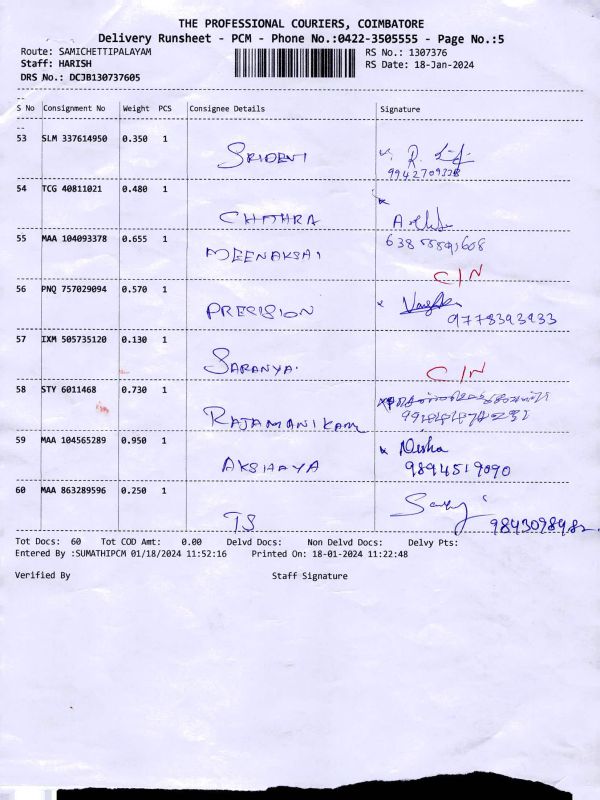 THE PROFESSIONAL COURIERS, COIMBATORE
Delivery Runsheet - PCM - Phone No.:0422-3505555 - Page No.:5
Route: SAMICHETTIPALAYAM RS No.: 1307376
Staff: HARISH RS Date: 18-Jan-2024
DRS No.: DCJB130737605
S No Consignment No Weight PCS Consignee Details Signature
53 SLM 337614950 0.350 1
SRIDEVI R.
9942709328
54 TCG 40811021 0.480 1
CHITHRA
55 MAA 104093378 0.655 1
MEENAKSAI
C/N
56 PNQ 757029094 0.570 1
PRECISION
9778393933
57 IXM 505735120 0.130 1
SARANYA. C/N
58 STY 6011468 0.730 1
RAJAMANIKAM
59 MAA 104565289 0.950 1 Nisha
AKSHAYA 9894519090
60 MAA 863289596 0.250 1
TS 9843098982
Tot Docs: 60 Tot COD Amt: 0.00 Delvd Docs: Non Delvd Docs: Delvy Pts:
Entered By :SUMATHIPCM 01/18/2024 11:52:16 Printed On: 18-01-2024 11:22:48
Verified By Staff Signature